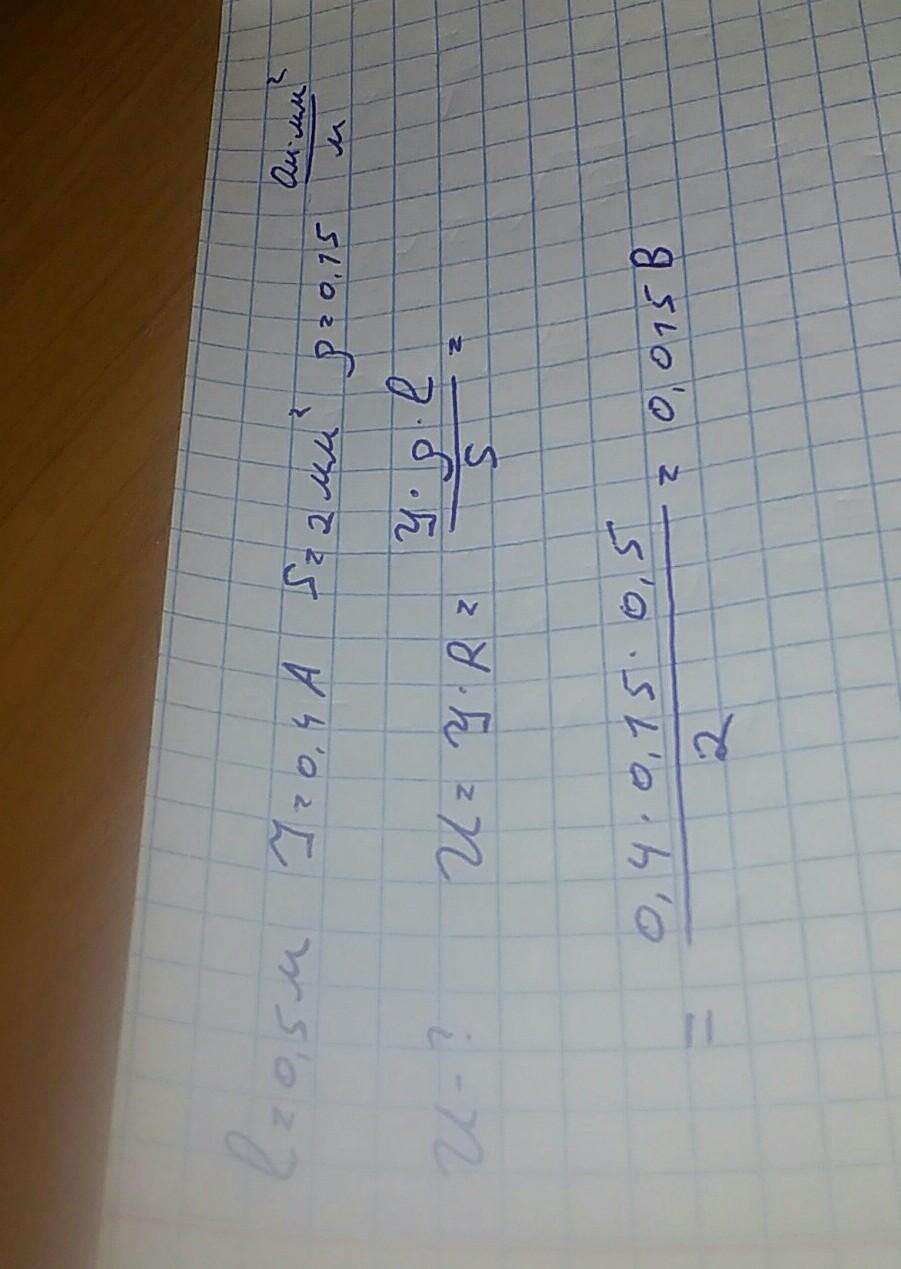 l = 0,5 м У = 0,4 А S = 2 мм² ρ = 0,15 Ом·мм²/м
U - ? U = У·R = У·ρ·l/S =
= 0,4·0,15·0,5/2 = 0,015 В